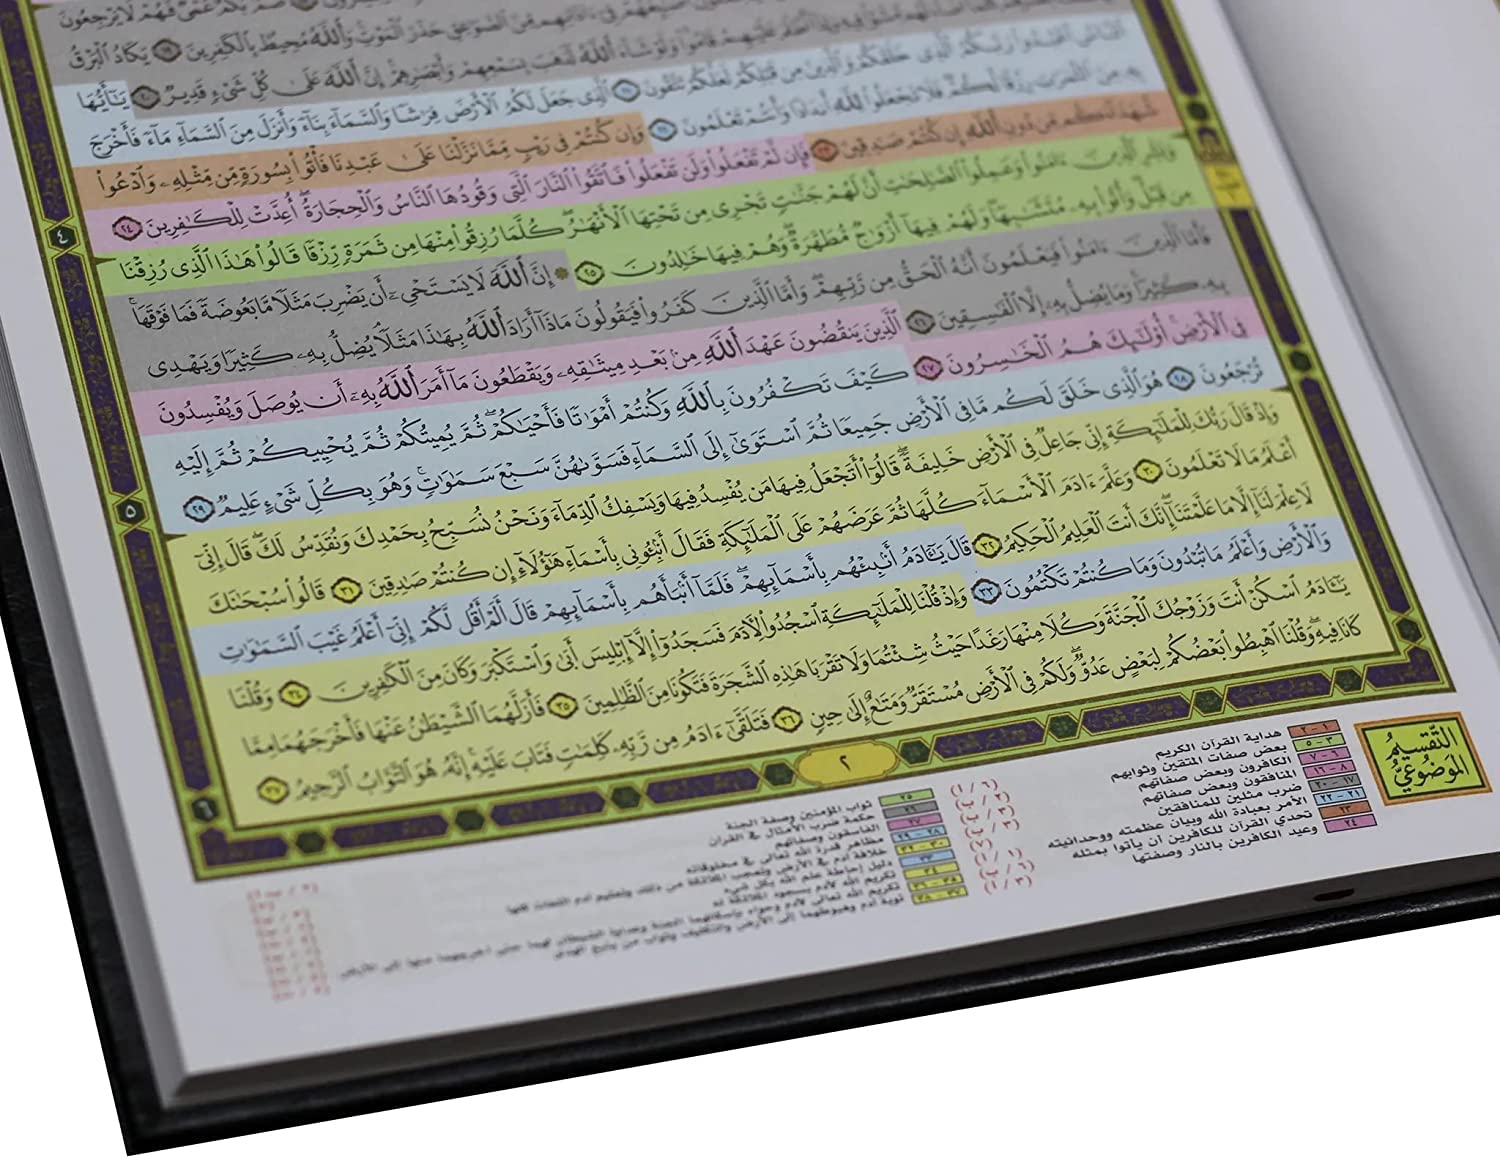 صُمٌّ بُكْمٌ عُمْىٌ فَهُمْ لَا يَرْجِعُونَ
حَذَرَ ٱلْمَوْتِ وَٱللَّهُ مُحِيطٌۢ بِٱلْكَٰفِرِينَ ١٩ يَكَادُ ٱلْبَرْقُ
عَلَيْهِمْ قَامُوا۟ وَلَوْ شَآءَ ٱللَّهُ لَذَهَبَ بِسَمْعِهِمْ وَأَبْصَٰرِهِمْ إِنَّ ٱللَّهَ عَلَىٰ كُلِّ شَىْءٍ قَدِيرٌ ٢٠ يَٰٓأَيُّهَا
ٱلنَّاسُ ٱعْبُدُوا۟ رَبَّكُمُ ٱلَّذِى خَلَقَكُمْ وَٱلَّذِينَ مِن قَبْلِكُمْ لَعَلَّكُمْ تَتَّقُونَ ٢١ ٱلَّذِى جَعَلَ لَكُمُ ٱلْأَرْضَ فِرَٰشًا وَٱلسَّمَآءَ بِنَآءً وَأَنزَلَ مِنَ ٱلسَّمَآءِ مَآءً فَأَخْرَجَ
بِهِۦ مِنَ ٱلثَّمَرَٰتِ رِزْقًا لَّكُمْ فَلَا تَجْعَلُوا۟ لِلَّهِ أَندَادًا وَأَنتُمْ تَعْلَمُونَ ٢٢ وَإِن كُنتُمْ فِى رَيْبٍ مِّمَّا نَزَّلْنَا عَلَىٰ عَبْدِنَا فَأْتُوا۟ بِسُورَةٍ مِّن مِّثْلِهِۦ وَٱدْعُوا۟
شُهَدَآءَكُم مِّن دُونِ ٱللَّهِ إِن كُنتُمْ صَٰدِقِينَ ٢٣ فَإِن لَّمْ تَفْعَلُوا۟ وَلَن تَفْعَلُوا۟ فَٱتَّقُوا۟ ٱلنَّارَ ٱلَّتِى وَقُودُهَا ٱلنَّاسُ وَٱلْحِجَارَةُ أُعِدَّتْ لِلْكَٰفِرِينَ ٢٤
وَبَشِّرِ ٱلَّذِينَ ءَامَنُوا۟ وَعَمِلُوا۟ ٱلصَّٰلِحَٰتِ أَنَّ لَهُمْ جَنَّٰتٍ تَجْرِى مِن تَحْتِهَا ٱلْأَنْهَٰرُ كُلَّمَا رُزِقُوا۟ مِنْهَا مِن ثَمَرَةٍ رِّزْقًا قَالُوا۟ هَٰذَا ٱلَّذِى رُزِقْنَا
مِن قَبْلُ وَأُتُوا۟ بِهِۦ مُتَشَٰبِهًا وَلَهُمْ فِيهَآ أَزْوَٰجٌ مُّطَهَّرَةٌ وَهُمْ فِيهَا خَٰلِدُونَ ٢٥ إِنَّ ٱللَّهَ لَا يَسْتَحْىِۦٓ أَن يَضْرِبَ مَثَلًا مَّا بَعُوضَةً فَمَا فَوْقَهَا
فَأَمَّا ٱلَّذِينَ ءَامَنُوا۟ فَيَعْلَمُونَ أَنَّهُ ٱلْحَقُّ مِن رَّبِّهِمْ وَأَمَّا ٱلَّذِينَ كَفَرُوا۟ فَيَقُولُونَ مَاذَآ أَرَادَ ٱللَّهُ بِهَٰذَا مَثَلًا يُضِلُّ بِهِۦ كَثِيرًا وَيَهْدِى
بِهِۦ كَثِيرًا وَمَا يُضِلُّ بِهِۦٓ إِلَّا ٱلْفَٰسِقِينَ ٢٦ ٱلَّذِينَ يَنقُضُونَ عَهْدَ ٱللَّهِ مِنۢ بَعْدِ مِيثَٰقِهِۦ وَيَقْطَعُونَ مَآ أَمَرَ ٱللَّهُ بِهِۦٓ أَن يُوصَلَ وَيُفْسِدُونَ
فِى ٱلْأَرْضِ أُو۟لَٰٓئِكَ هُمُ ٱلْخَٰسِرُونَ ٢٧ كَيْفَ تَكْفُرُونَ بِٱللَّهِ وَكُنتُمْ أَمْوَٰتًا فَأَحْيَٰكُمْ ثُمَّ يُمِيتُكُمْ ثُمَّ يُحْيِيكُمْ ثُمَّ إِلَيْهِ
تُرْجَعُونَ ٢٨ هُوَ ٱلَّذِى خَلَقَ لَكُم مَّا فِى ٱلْأَرْضِ جَمِيعًا ثُمَّ ٱسْتَوَىٰٓ إِلَى ٱلسَّمَآءِ فَسَوَّىٰهُنَّ سَبْعَ سَمَٰوَٰتٍ وَهُوَ بِكُلِّ شَىْءٍ عَلِيمٌ ٢٩
وَإِذْ قَالَ رَبُّكَ لِلْمَلَٰٓئِكَةِ إِنِّى جَاعِلٌ فِى ٱلْأَرْضِ خَلِيفَةً قَالُوٓا۟ أَتَجْعَلُ فِيهَا مَن يُفْسِدُ فِيهَا وَيَسْفِكُ ٱلدِّمَآءَ وَنَحْنُ نُسَبِّحُ بِحَمْدِكَ وَنُقَدِّسُ لَكَ قَالَ إِنِّىٓ
أَعْلَمُ مَا لَا تَعْلَمُونَ ٣٠ وَعَلَّمَ ءَادَمَ ٱلْأَسْمَآءَ كُلَّهَا ثُمَّ عَرَضَهُمْ عَلَى ٱلْمَلَٰٓئِكَةِ فَقَالَ أَنۢبِـُٔونِى بِأَسْمَآءِ هَٰٓؤُلَآءِ إِن كُنتُمْ صَٰدِقِينَ ٣١ قَالُوا۟ سُبْحَٰنَكَ
لَا عِلْمَ لَنَآ إِلَّا مَا عَلَّمْتَنَآ إِنَّكَ أَنتَ ٱلْعَلِيمُ ٱلْحَكِيمُ ٣٢ قَالَ يَٰٓـَٔادَمُ أَنۢبِئْهُم بِأَسْمَآئِهِمْ فَلَمَّآ أَنۢبَأَهُم بِأَسْمَآئِهِمْ قَالَ أَلَمْ أَقُل لَّكُمْ إِنِّىٓ أَعْلَمُ غَيْبَ ٱلسَّمَٰوَٰتِ
وَٱلْأَرْضِ وَأَعْلَمُ مَا تُبْدُونَ وَمَا كُنتُمْ تَكْتُمُونَ ٣٣ وَإِذْ قُلْنَا لِلْمَلَٰٓئِكَةِ ٱسْجُدُوا۟ لِءَادَمَ فَسَجَدُوٓا۟ إِلَّآ إِبْلِيسَ أَبَىٰ وَٱسْتَكْبَرَ وَكَانَ مِنَ ٱلْكَٰفِرِينَ ٣٤ وَقُلْنَا
يَٰٓـَٔادَمُ ٱسْكُنْ أَنتَ وَزَوْجُكَ ٱلْجَنَّةَ وَكُلَا مِنْهَا رَغَدًا حَيْثُ شِئْتُمَا وَلَا تَقْرَبَا هَٰذِهِ ٱلشَّجَرَةَ فَتَكُونَا مِنَ ٱلظَّٰلِمِينَ ٣٥ فَأَزَلَّهُمَا ٱلشَّيْطَٰنُ عَنْهَا فَأَخْرَجَهُمَا مِمَّا
كَانَا فِيهِ وَقُلْنَا ٱهْبِطُوا۟ بَعْضُكُمْ لِبَعْضٍ عَدُوٌّ وَلَكُمْ فِى ٱلْأَرْضِ مُسْتَقَرٌّ وَمَتَٰعٌ إِلَىٰ حِينٍ ٣٦ فَتَلَقَّىٰٓ ءَادَمُ مِن رَّبِّهِۦ كَلِمَٰتٍ فَتَابَ عَلَيْهِ إِنَّهُۥ هُوَ ٱلتَّوَّابُ ٱلرَّحِيمُ ٣٧
٤
٥
٦
٢
التَّقسِيمُ
المَوضُوعِيُّ
١ - ٢ هداية القرآن الكريم
٣ - ٥ بعض صفات المتقين وثوابهم
٦ - ٧ الكافرون وبعض صفاتهم
٨ - ١٦ المنافقون وبعض صفاتهم
١٧ - ٢٠ ضرب مثلين للمنافقين
٢١ - ٢٢ الأمر بعبادة الله وبيان عظمته ووحدانيته
٢٣ تحدي القرآن للكافرين أن يأتوا بمثله
٢٤ وعيد الكافرين بالنار وصفتها
٢٥ ثواب المؤمنين وصفة الجنة
٢٦ حكمة ضرب الأمثال في القرآن
٢٧ الفاسقون وصفاتهم
٢٨ - ٢٩ مظاهر قدرة الله تعالى في مخلوقاته
٣٠ - ٣٢ خلافة آدم في الأرض وتعجب الملائكة من ذلك وتعليم آدم اللغات كلها
٣٣ دليل إحاطة علم الله بكل شيء
٣٤ تكريم الله لآدم بسجود الملائكة له